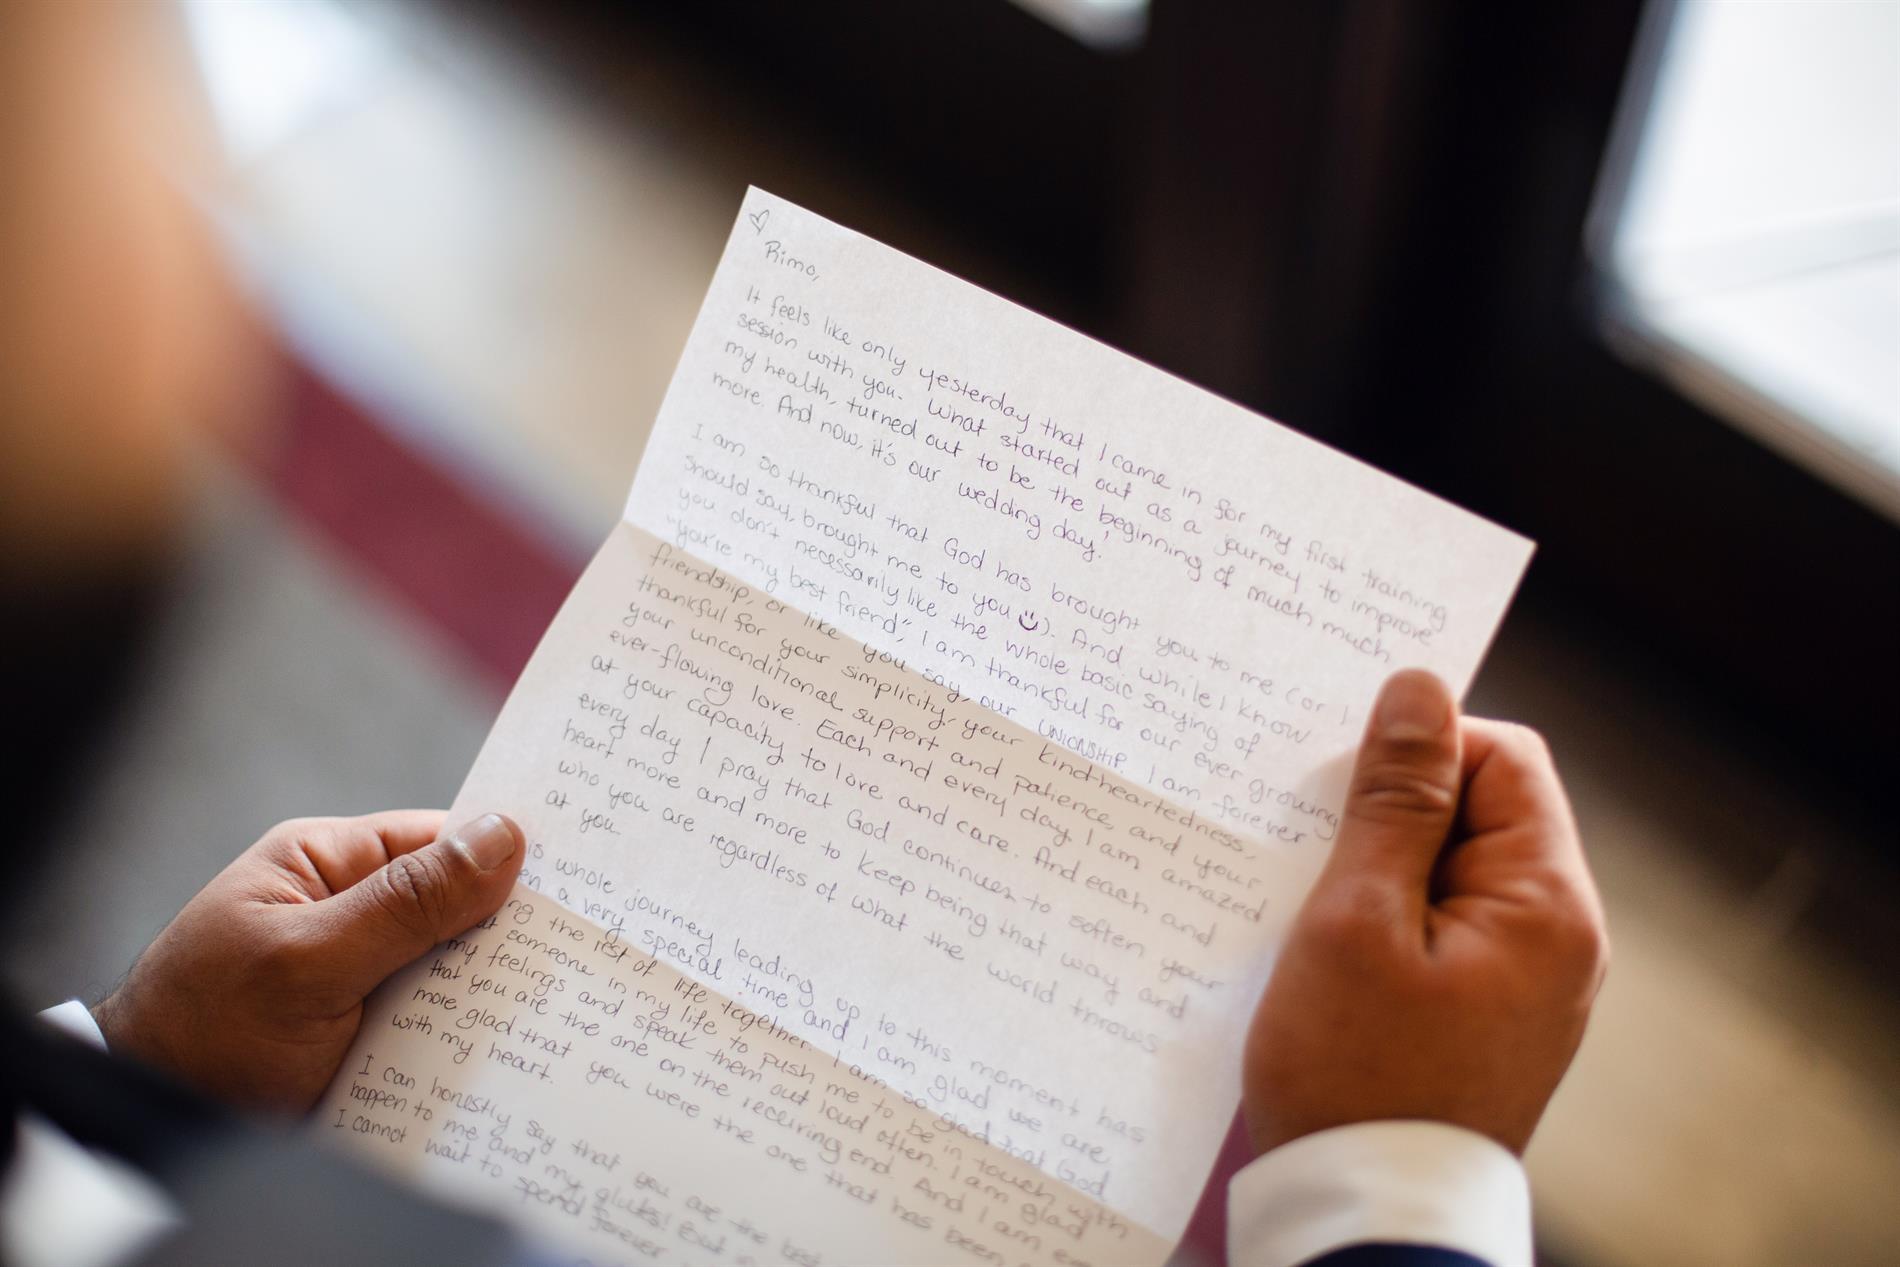 Rimo,
It feels like only yesterday that I came in for my first training
session with you. What started out as a journey to improve
my health, turned out to be the beginning of much much
more. And now, it's our wedding day!
I am so thankful that God has brought you to me (or I
should say, brought me to you). And while I know
you don't necessarily like the whole basic saying of
"you're my best friend," I am thankful for our ever growing
friendship, or like you say, our UNIONSHIP. I am forever
thankful for your simplicity, your kind-heartedness,
your unconditional support and patience, and your
ever-flowing love. Each and every day I am amazed
at your capacity to love and care. And each and
every day I pray that God continues to soften your
heart more and more to keep being that way and
who you are regardless of what the world throws
at you.
is whole journey leading up to this moment has
en a very special time and I am glad we are
ng the rest of life together. I am so glad that God
ut someone in my life to push me to be in touch with
my feelings and speak them out loud often. I am glad
that you are the one on the receiving end. And I am
more glad that you were the one that has been
with my heart.
I can honestly say that you are the best
happen to me and my glutes! But
I cannot wait to spend forever